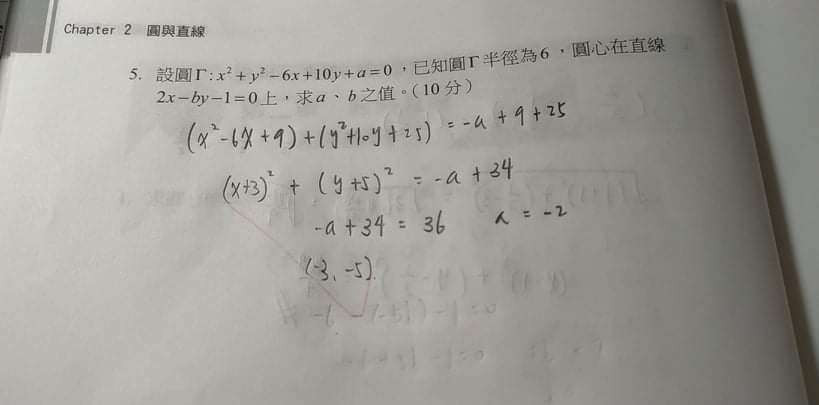 Chapter 2 圓與直線
5. 設圓Γ:x²+y²−6x+10y+a=0,已知圓Γ半徑為6,圓心在直線
2x−by−1=0上,求a、b之值。(10分)
(x²-6x+9)+(y²+10y+25) = -a+9+25
(x+3)² + (y+5)² = -a+34
-a+34 = 36 a = -2
(-3, -5)